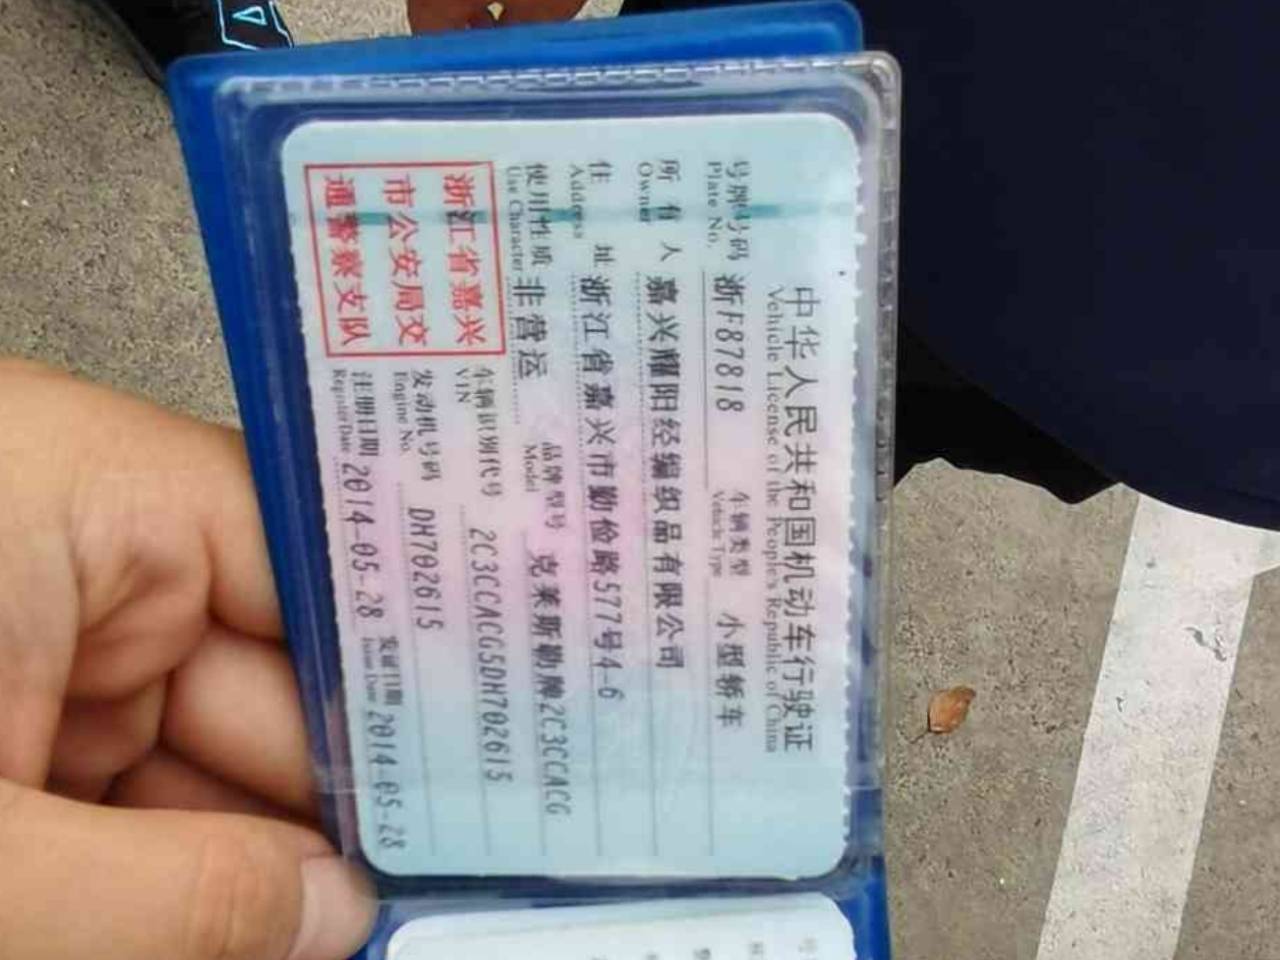 中华人民共和国机动车行驶证
Vehicle License of the People's Republic of China
号牌号码 浙F87818 车辆类型 小型轿车
Plate No. Vehicle Type
所有人 嘉兴耀阳经编织品有限公司
Owner
住址 浙江省嘉兴市勤俭路577号4-6
Address
使用性质 非营运 品牌型号 克莱斯勒牌2C3CCACG
Use Character Model
浙江省嘉兴
市公安局交
通警察支队
车辆识别代号 2C3CCACG5DH702615
VIN
发动机号码 DH702615
Engine No.
注册日期 2014-05-28 发证日期 2014-05-28
Register Date Issue Date